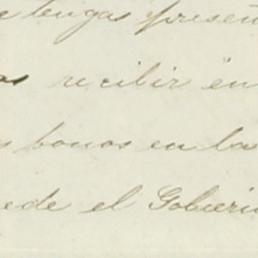 tengas presen
os recibir en
s bonos en la
ede el Gobier